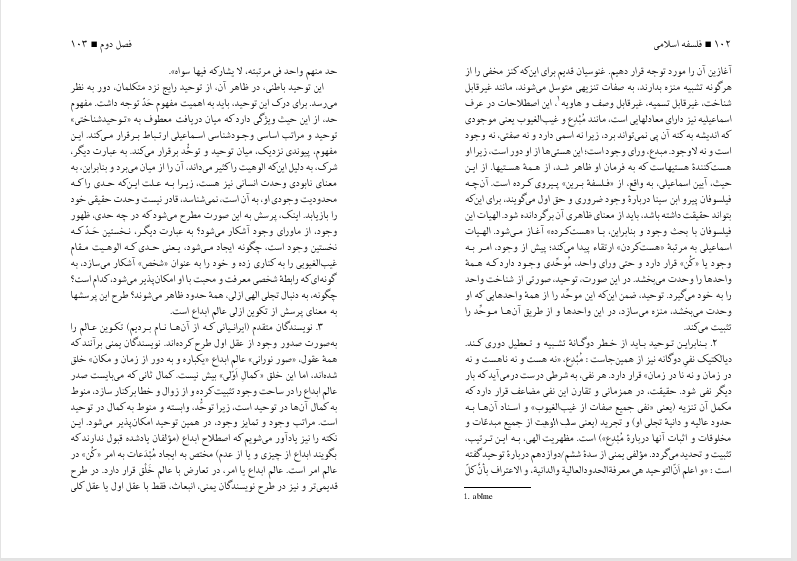 ۱۰۲ ■ فلسفه اسلامی
آغازین آن را مورد توجه قرار دهیم. غنوسیان قدیم برای این‌که کنز مخفی را از
هرگونه تشبیه منزه بدارند، به صفات تنزیهی متوسل می‌شوند، مانند غیرقابل
شناخت، غیرقابل تسمیه، غیرقابل وصف و هاویه۱. این اصطلاحات در عرف
اسماعیلیه نیز دارای معادلهایی است، مانند مُبْدِع و غیب‌الغیوب یعنی موجودی
که اندیشه به کنه آن پی نمی‌تواند برد، زیرا نه اسمی دارد و نه صفتی، نه وجود
است و نه لاوجود. مبدع، ورای وجود است؛ این هستی‌ها از او دور است، زیرا او
هست‌کنندهٔ هستیهاست که به فرمان او ظاهر شد، از همهٔ هستیها. از این
حیث، آیین اسماعیلی، به واقع، از «فلسفهٔ برین» پیروی کرده است. آن‌چه
فیلسوفان پیرو ابن سینا دربارهٔ وجود ضروری و حق اول می‌گویند، برای این‌که
بتواند حقیقت داشته باشد، باید از معنای ظاهری آن برگردانده شود. الهیات این
فیلسوفان با بحث وجود و بنابراین، با «هست‌کرده» آغاز می‌شود. الهیات
اسماعیلی به مرتبهٔ «هست‌کردن» ارتقاء پیدا می‌کند؛ پیش از وجود، امر به
وجود یا «کُن» قرار دارد و حتی ورای واحد، مُوحِّدی وجود دارد که همهٔ
واحدها را وحدت می‌بخشد. در این صورت، توحید، صورتی از شناخت واحد
را به خود می‌گیرد. توحید، ضمن این‌که این موحِّد را از همهٔ واحدهایی که او
وحدت می‌بخشد، منزه می‌سازد، در این واحدها و از طریق آن‌ها موحِّد را
تثبیت می‌کند.
۲. بنابراین توحید باید از خطر دوگانهٔ تشبیه و تعطیل دوری کند.
دیالکتیک نفی دوگانه نیز از همین‌جاست: مُبْدِع، «نه هست و نه ناهست و نه
در زمان و نه نا در زمان» قرار دارد. هر نفی، به شرطی درست درمی‌آید که بار
دیگر نفی شود. حقیقت، در همزمانی و تقارن این نفی مضاعف قرار دارد که
مکمل آن تنزیه (یعنی «نفی جمیع صفات از غیب‌الغیوب» و اسناد آن‌ها به
حدود عالیه و دانیهٔ تجلی او) و تجرید (یعنی سلب الوهیت از جمیع مبدعات و
مخلوقات و اثبات آنها دربارهٔ مُبْدِع») است. مظهریت الهی، به این ترتیب،
تثبیت و تحدید می‌گردد. مؤلفی یمنی از سدهٔ ششم/دوازدهم دربارهٔ توحید گفته
است: «و اعلم اَنّ‌التوحید هی معرفةالحدودالعالیة والدانیة، و الاعتراف باَنّ کلّ
1. abîme
فصل دوم ■ ۱۰۳
حد منهم واحد فی مرتبته، لا یشارکه فیها سواه».
این توحید باطنی، در ظاهر آن، از توحید رایج نزد متکلمان، دور به نظر
می‌رسد. برای درک این توحید، باید به اهمیت مفهوم حَدّ توجه داشت. مفهوم
حد، از این حیث ویژگی دارد که میان دریافت معطوف به «توحیدشناختی»
توحید و مراتب اساسی وجودشناسی اسماعیلی ارتباط برقرار می‌کند. این
مفهوم، پیوندی نزدیک، میان توحید و توحُّد برقرار می‌کند. به عبارت دیگر،
شرک، به دلیل این‌که الوهیت را کثیر می‌داند، آن را از میان می‌برد و بنابراین، به
معنای نابودی وحدت انسانی نیز هست، زیرا به علت این‌که حدی را که
محدودیت وجودی او، به آن است، نمی‌شناسد، قادر نیست وحدت حقیقی خود
را بازیابد. اینک، پرسش به این صورت مطرح می‌شود که در چه حدی، ظهور
وجود، از ماورای وجود آشکار می‌شود؟ به عبارت دیگر، نخستین حَدّ که
نخستین وجود است، چگونه ایجاد می‌شود، یعنی حدی که الوهیت مقام
غیب‌الغیوبی را به کناری زده و خود را به عنوان «شخص» آشکار می‌سازد، به
گونه‌ای‌که رابطهٔ شخصی معرفت و محبت با او امکان‌پذیر می‌شود، کدام است؟
چگونه، به دنبال تجلی الهی ازلی، همهٔ حدود ظاهر می‌شوند؟ طرح این پرسشها
به معنای پرسش از تکوین ازلی عالم ابداع است.
۳. نویسندگان متقدم (ایرانیانی که از آن‌ها نام بردیم) تکوین عالم را
به‌صورت صدور وجود از عقل اول طرح کرده‌اند. نویسندگان یمنی برآنند که
همهٔ عقول، «صور نورانی» عالم ابداع «یکباره و به دور از زمان و مکان» خلق
شده‌اند، اما این خلق «کمالِ اوّلی» بیش نیست. کمال ثانی که می‌بایست صدر
عالم ابداع را در ساحت وجود تثبیت کرده و از زوال و خطا برکنار سازد، منوط
به کمال آن‌ها در توحید است، زیرا توحُّد، وابسته و منوط به کمال در توحید
است. مراتب وجود و تمایز وجود، در همین توحید امکان‌پذیر می‌شود. این
نکته را نیز یادآور می‌شویم که اصطلاح ابداع (مؤلفان یادشده قبول ندارند که
بگویند ابداع از چیزی و یا از عدم) مختص به ایجاد مُبْدَعات به امر «کُن» در
عالم امر است. عالم ابداع یا امر، در تعارض با عالم خَلْق قرار دارد. در طرح
قدیمی‌تر و نیز در طرح نویسندگان یمنی، انبعاث، فقط با عقل اول یا عقل کلی